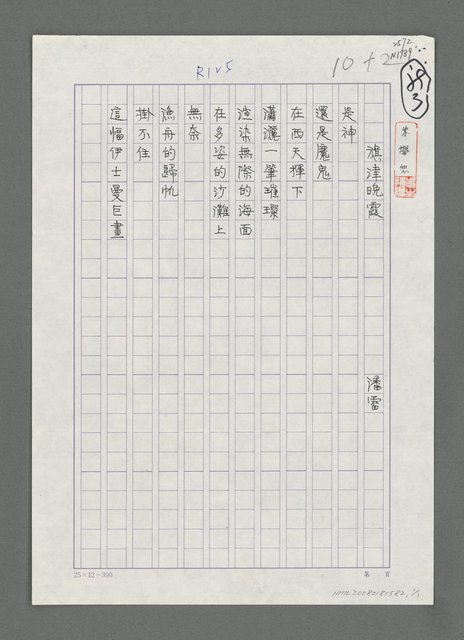 R1v5
10+
旗津晚霞
潘雷
是神
還是魔鬼
在西天揮下
瀟灑一筆璀璨
渲染無際的海面
在多姿的沙灘上
無奈
漁舟的歸帆
掛不住
這幅伊士曼巨畫
25×12=300
第 頁